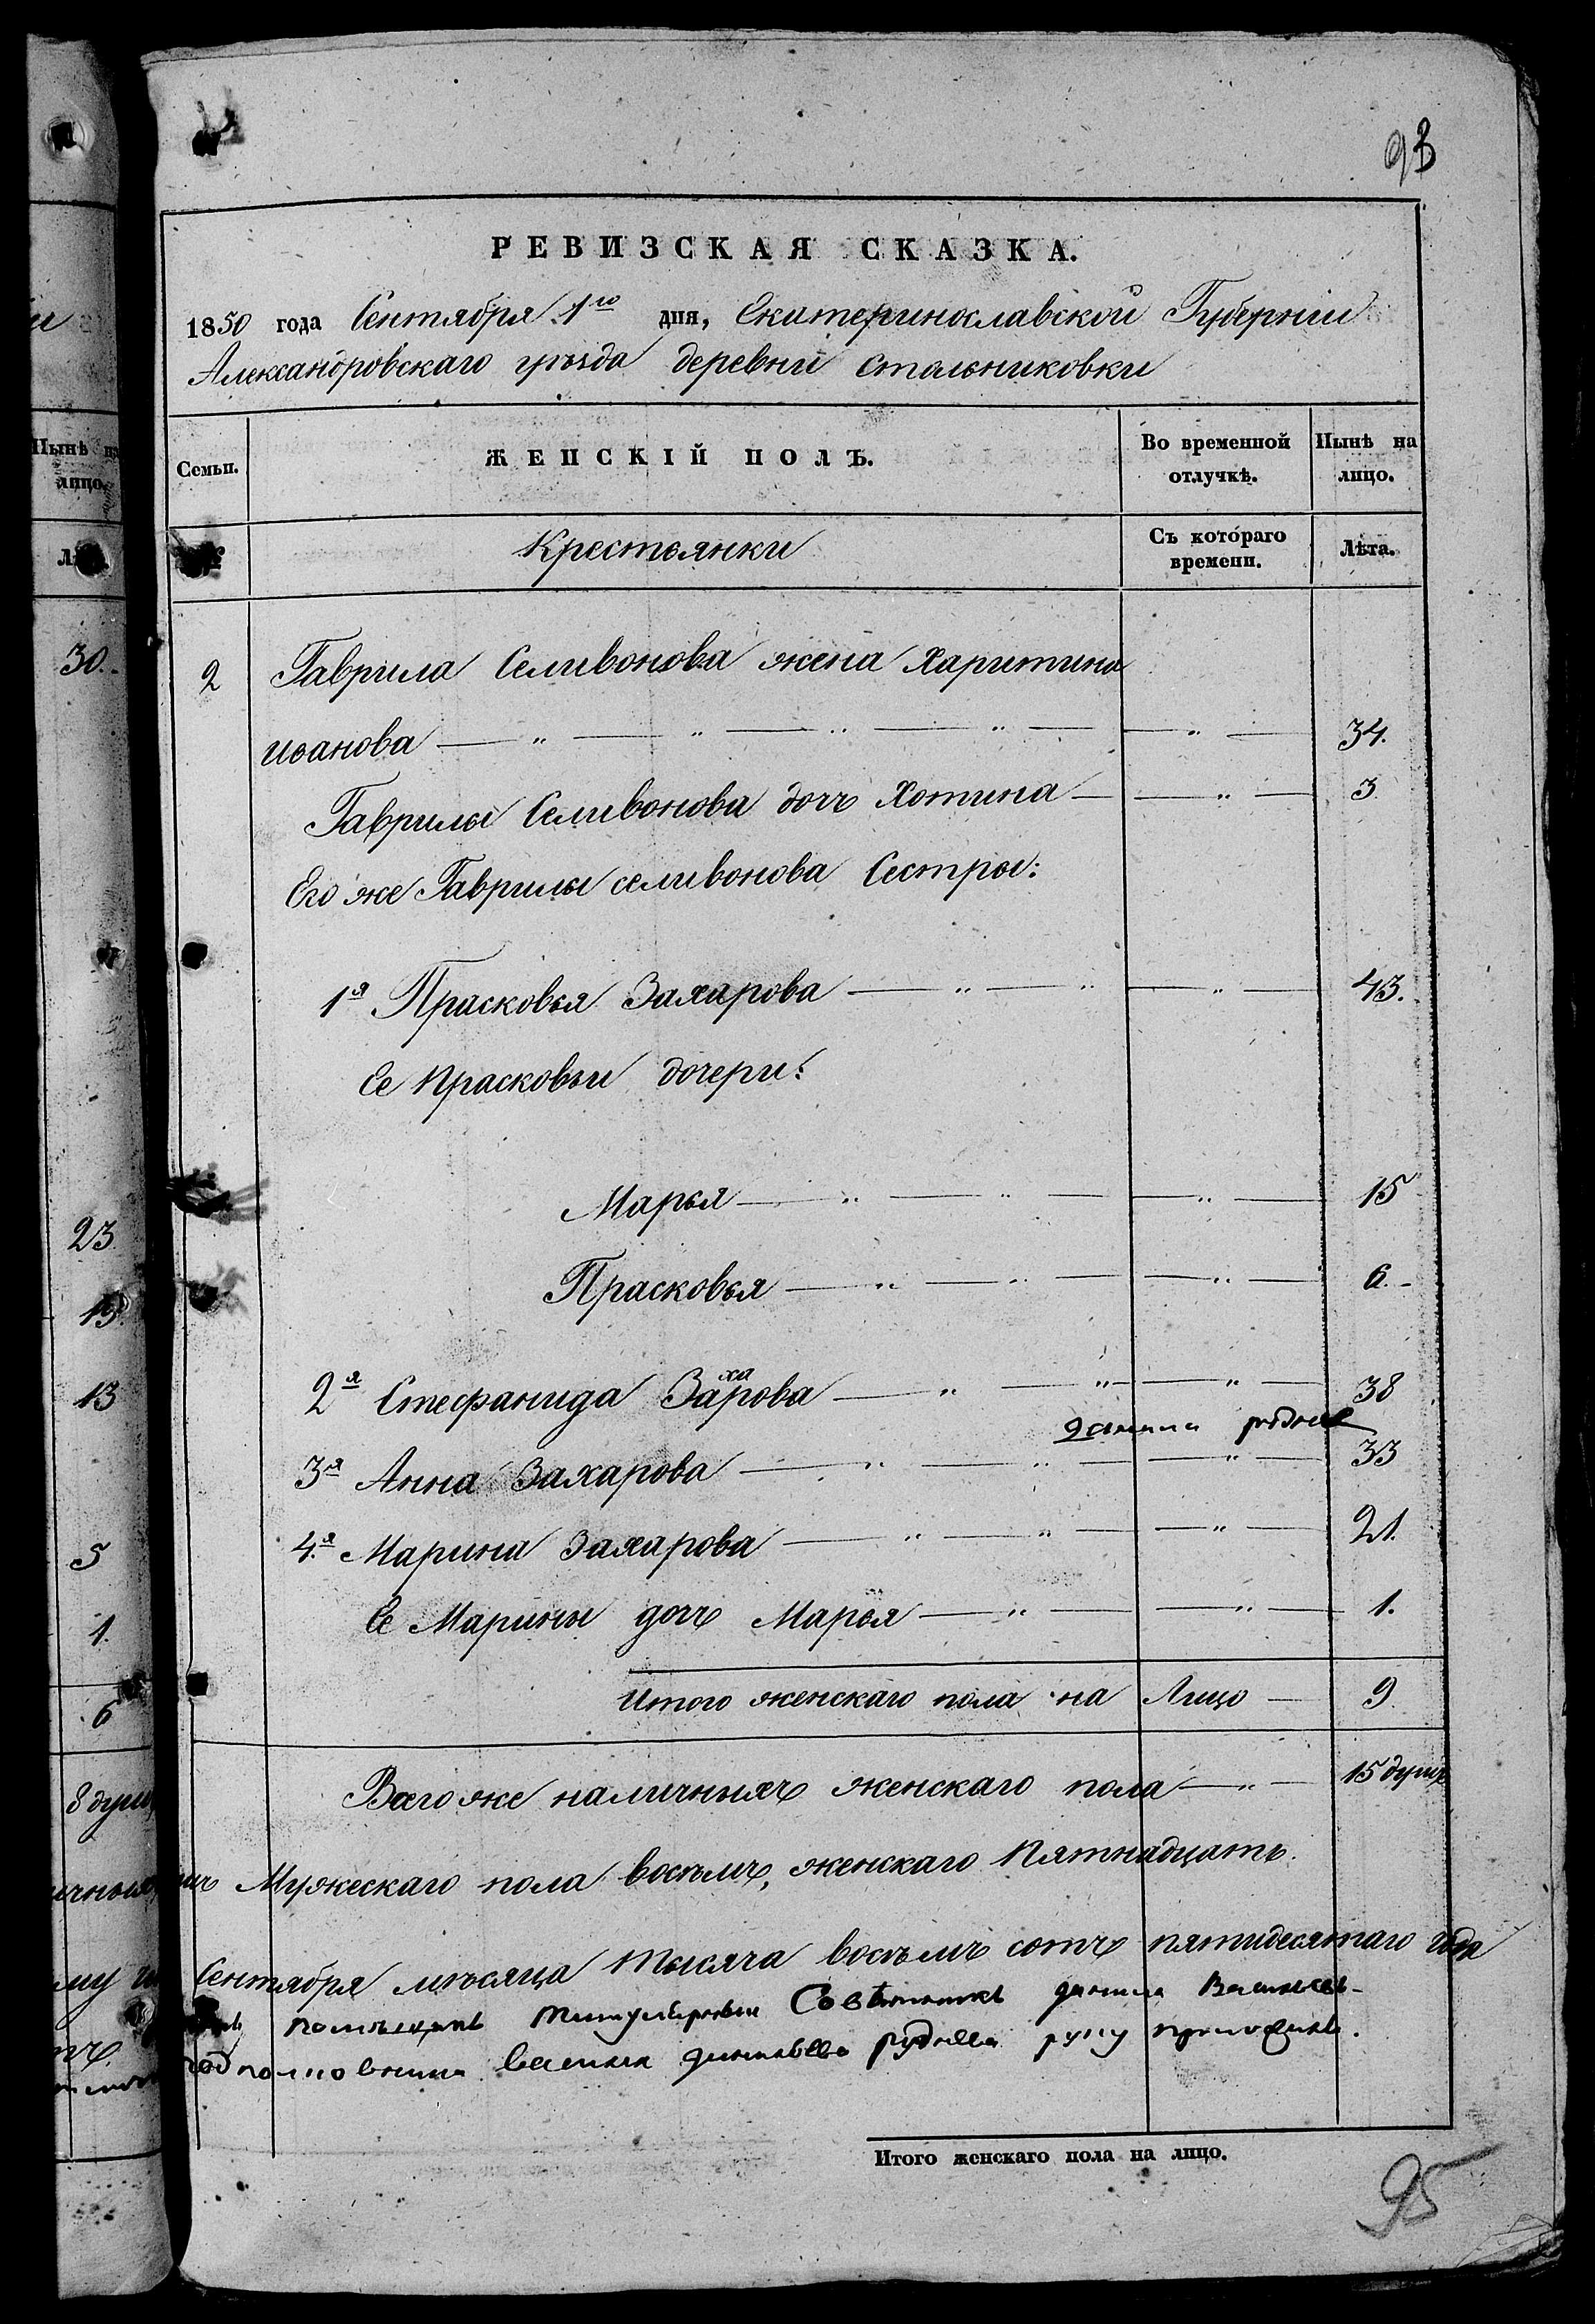 93
РЕВИЗСКАЯ СКАЗКА.
1850 года Сентября 1го дня, Екатеринославской Губерніи
Александровскаго уѣзда деревни Стольниковки
Нынѣ на лицо.
Семьи.
ЖЕНСКІЙ ПОЛЪ.
Во временной отлучкѣ.
Нынѣ на лицо.
Крестьянки
Съ котораго времени.
Лѣта.
30.
2 Гаврила Селивонова жена Харитина
Иванова — „ — „ — „ — „ — — „ — 34.
Гаврилы Селивонова дочь Хотина — — „ — 3
Его же Гаврилы Селивонова Сестры:
1я Прасковья Захарова — „ — „ — „ — 43.
Ее Прасковьи дочери:
Марья — „ — „ — — „ — 15
23.
Прасковья — „ — „ — — „ — 6. -
13
2я Стефанида Захарова — „ — „ — „ — 38
13
Данила
3я Анна Захарова — „ — „ — — „ — 33
4я Марина Захарова — „ — „ — — „ — 21.
5
Ее Марины дочь Марья — „ — — „ — 1.
1.
Итого женскаго пола на Лицо — 9
6
Всего же наличныхъ женскаго пола — „ — 15 душъ
8 душъ
Мужескаго пола восѣмъ, женскаго Пятнадцать.
Сентября мѣсяца Тысяча восѣмъ сотъ пятидесятаго года
помѣщикъ Титулярный Совѣтникъ Данила Васильевъ-
Василья Данилѣева Руднева руку приложилъ.
Итого женскаго пола на лицо.
95